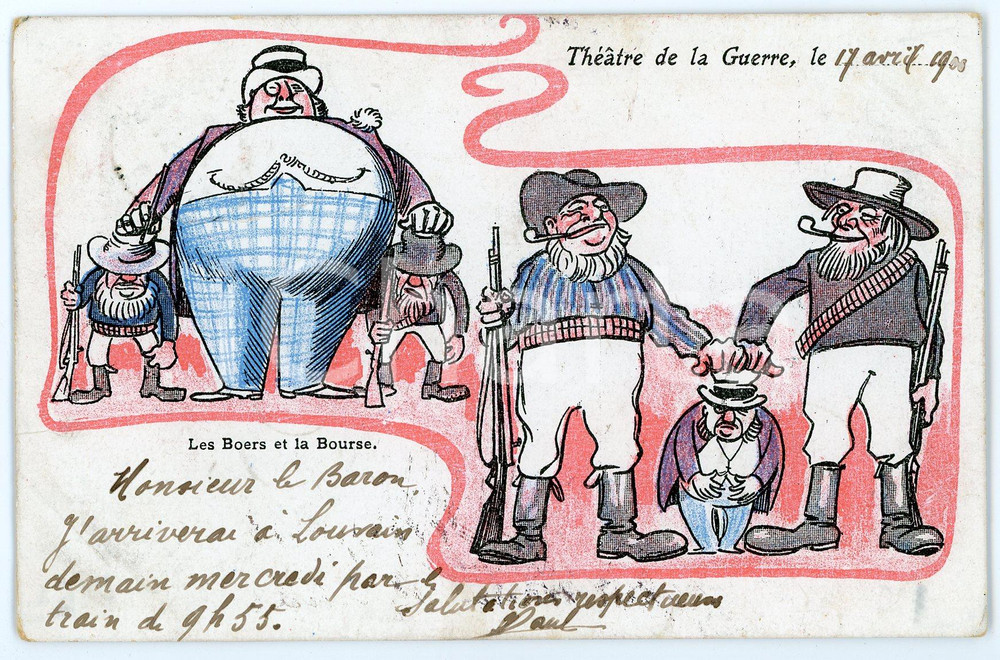 Théâtre de la Guerre, le 17 avril 1900
Les Boers et la Bourse.
Monsieur le Baron,
J'arriverai à Louvain
demain mercredi par le
train de 9h55.
Salutations respectueuses
Paul